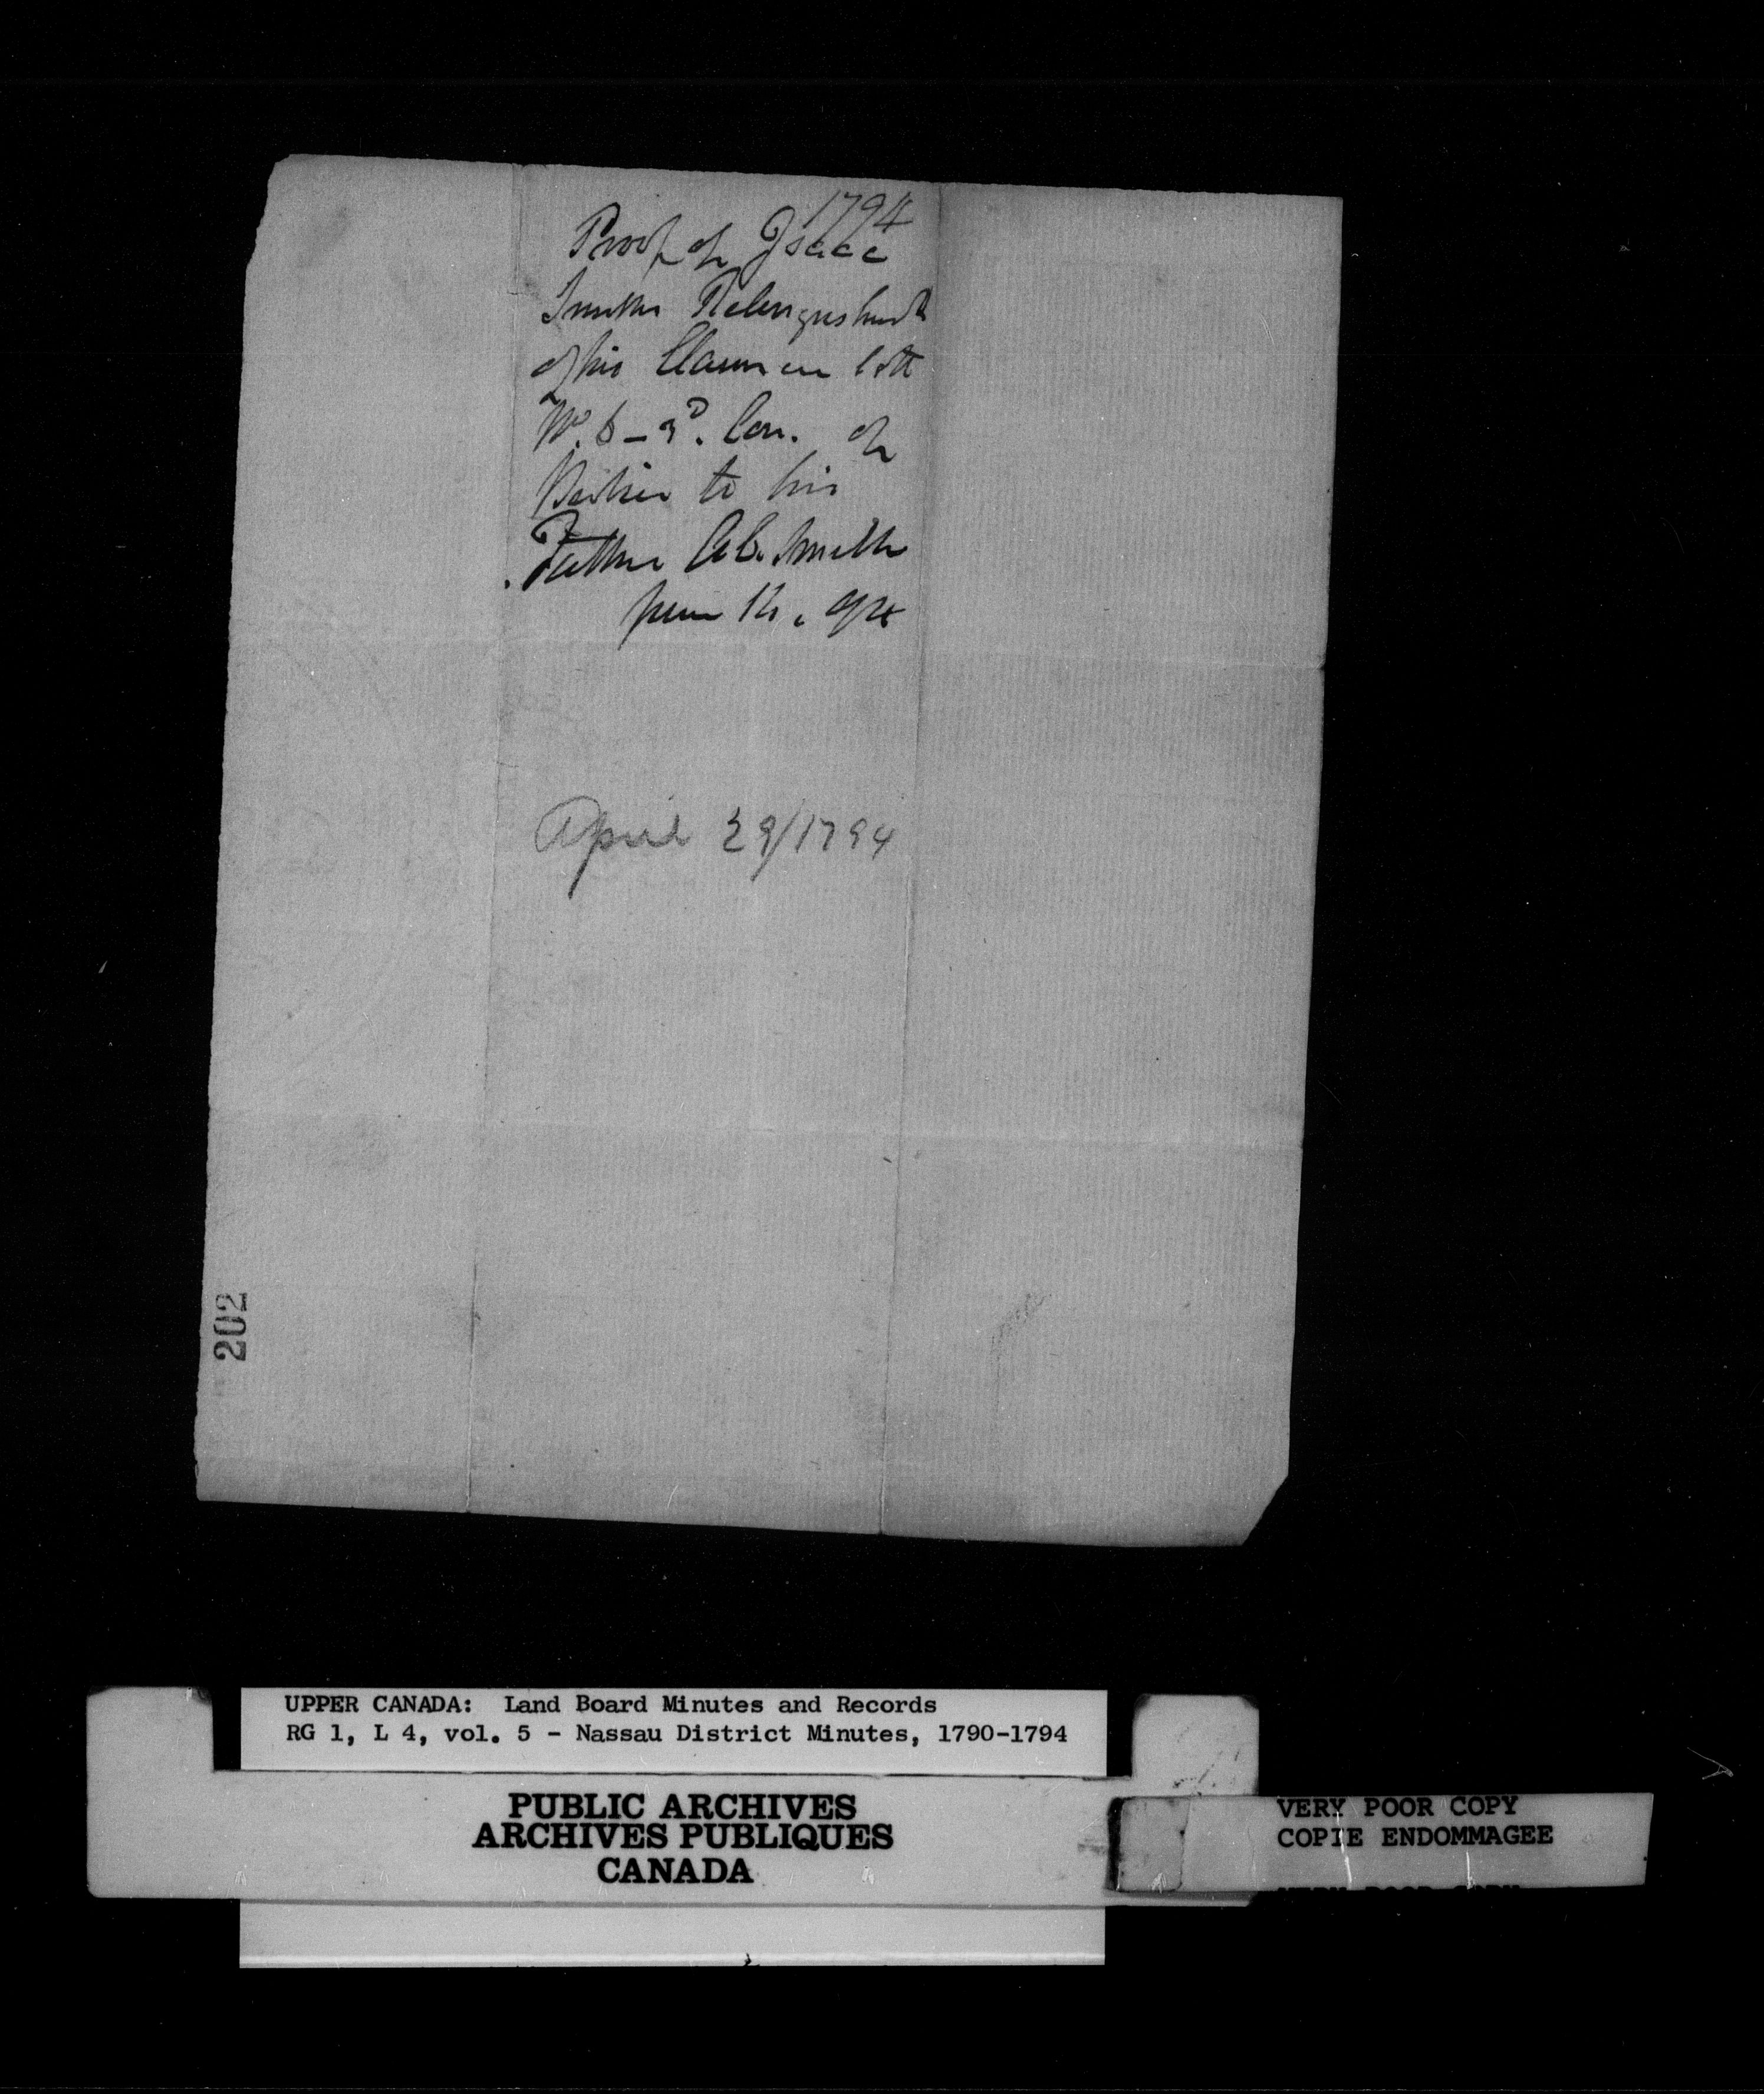 1794
Proof of Isaac
Smiths Relinquishmt
of his Claim on lott
No. 6 - 3D. Con. of
to his
Father Ab. Smith
June 12. 94
April 29/1794
202
UPPER CANADA: Land Board Minutes and Records
RG 1, L 4, vol. 5 - Nassau District Minutes, 1790-1794
PUBLIC ARCHIVES
ARCHIVES PUBLIQUES
CANADA
VERY POOR COPY
COPIE ENDOMMAGEE
VERY POOR COPY